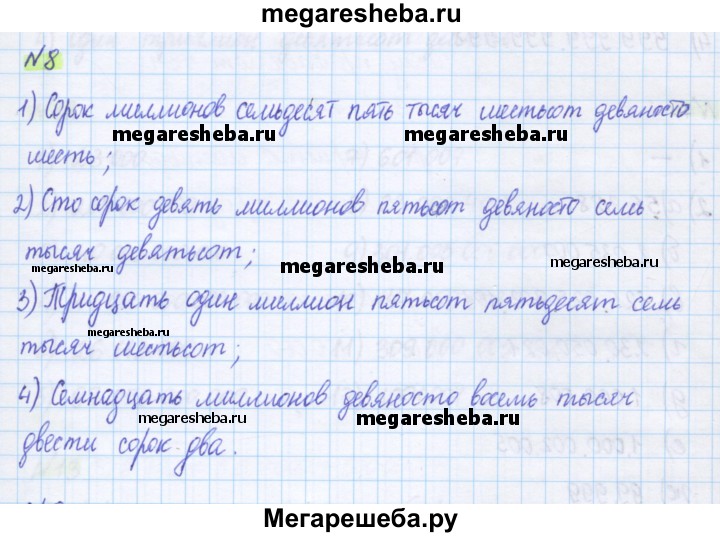 megaresheba.ru
№8
1) Сорок миллионов семьдесят пять тысяч шестьсот девяносто
megaresheba.ru megaresheba.ru
шесть;
2) Сто сорок девять миллионов пятьсот девяносто семь
тысяч девятьсот;
megaresheba.ru megaresheba.ru megaresheba.ru
3) Тридцать один миллион пятьсот пятьдесят семь
megaresheba.ru
тысяч шестьсот;
4) Семнадцать миллионов девяносто восемь тысяч
megaresheba.ru megaresheba.ru
двести сорок два.
Мегарешеба.ру